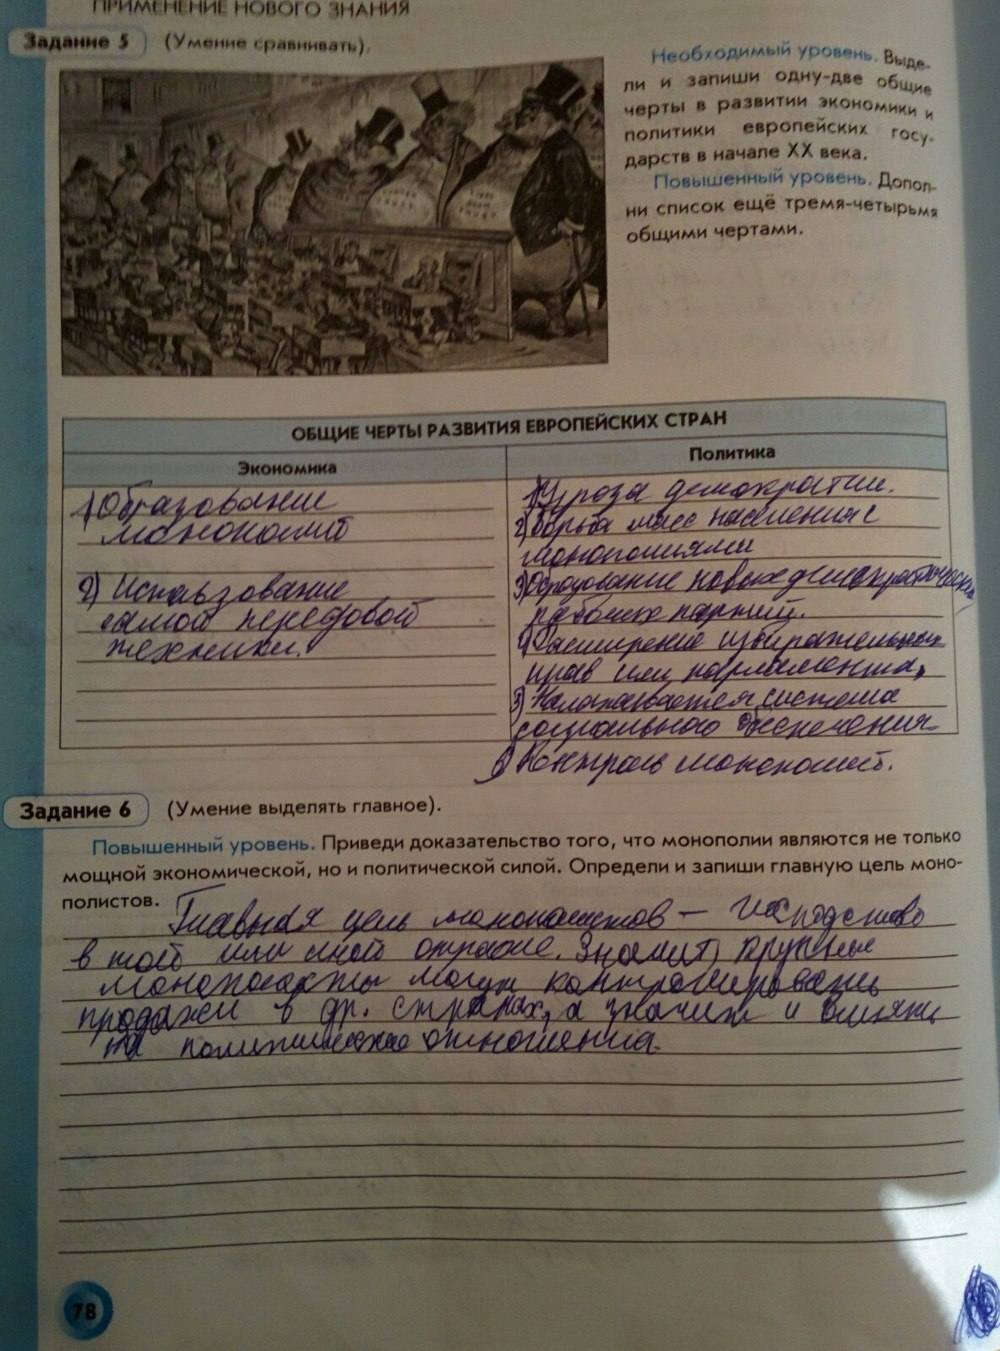 ПРИМЕНЕНИЕ НОВОГО ЗНАНИЯ
Задание 5 (Умение сравнивать).
Необходимый уровень. Выде-
ли и запиши одну-две общие
черты в развитии экономики и
политики европейских госу-
дарств в начале XX века.
Повышенный уровень. Допол-
ни список ещё тремя-четырьмя
общими чертами.
ОБЩИЕ ЧЕРТЫ РАЗВИТИЯ ЕВРОПЕЙСКИХ СТРАН
Экономика
1) Образование
монополий
2) Использование
самой передовой
техники.
Политика
1) Угроза демократии.
2) Борьба масс населения с
монополиями
3) Образование новых демократическ
рабочих партий.
4) Расширение избирательных
прав или парламента,
5) Налаживается система
социального обеспечения
6) Контроль монополий.
Задание 6 (Умение выделять главное).
Повышенный уровень. Приведи доказательство того, что монополии являются не только
мощной экономической, но и политической силой. Определи и запиши главную цель моно-
полистов.
Главная цель монополистов – господство
в той или иной отрасле. Значит, крупные
монополисты могут контролировать
продажи в др. странах, а значит и влиять
на политические отношения.
78